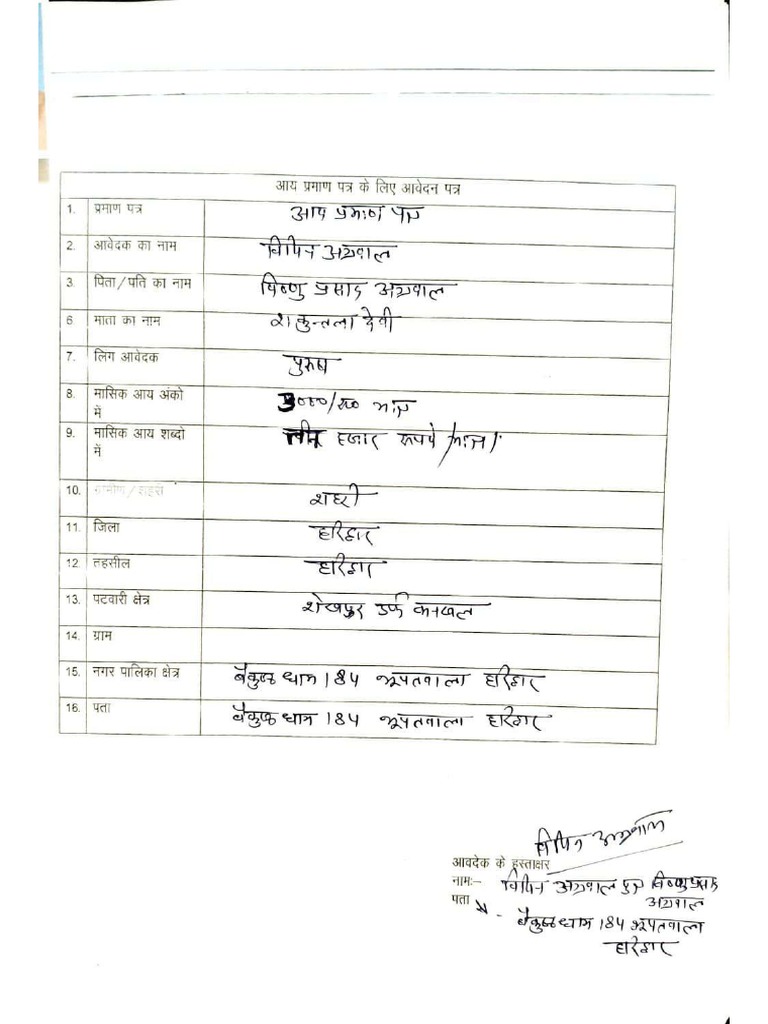 आय प्रमाण पत्र के लिए आवेदन पत्र
1. प्रमाण पत्र आय प्रमाण पत्र
2. आवेदक का नाम विपिन अग्रवाल
3. पिता/पति का नाम विष्णु प्रसाद अग्रवाल
6. माता का नाम शकुन्तला देवी
7. लिग आवेदक पुरुष
8. मासिक आय अंको 3000/रू० मात्र
में
9. मासिक आय शब्दो तीन हजार रूपये मात्र।
में
10. ग्रामीण/शहरी शहरी
11. जिला हरिद्वार
12. तहसील हरिद्वार
13. पटवारी क्षेत्र शेखपुर उर्फ कनखल
14. ग्राम
15. नगर पालिका क्षेत्र बैकुण्ठ धाम 184 भूपतवाला हरिद्वार
16. पता बैकुण्ठ धाम 184 भूपतवाला हरिद्वार
विपिन अग्रवाल
आवदेक के हस्ताक्षर
नामः– विपिन अग्रवाल पुत्र विष्णु प्रसाद
पता अग्रवाल
- बैकुण्ठ धाम 184 भूपतवाला
हरिद्वार